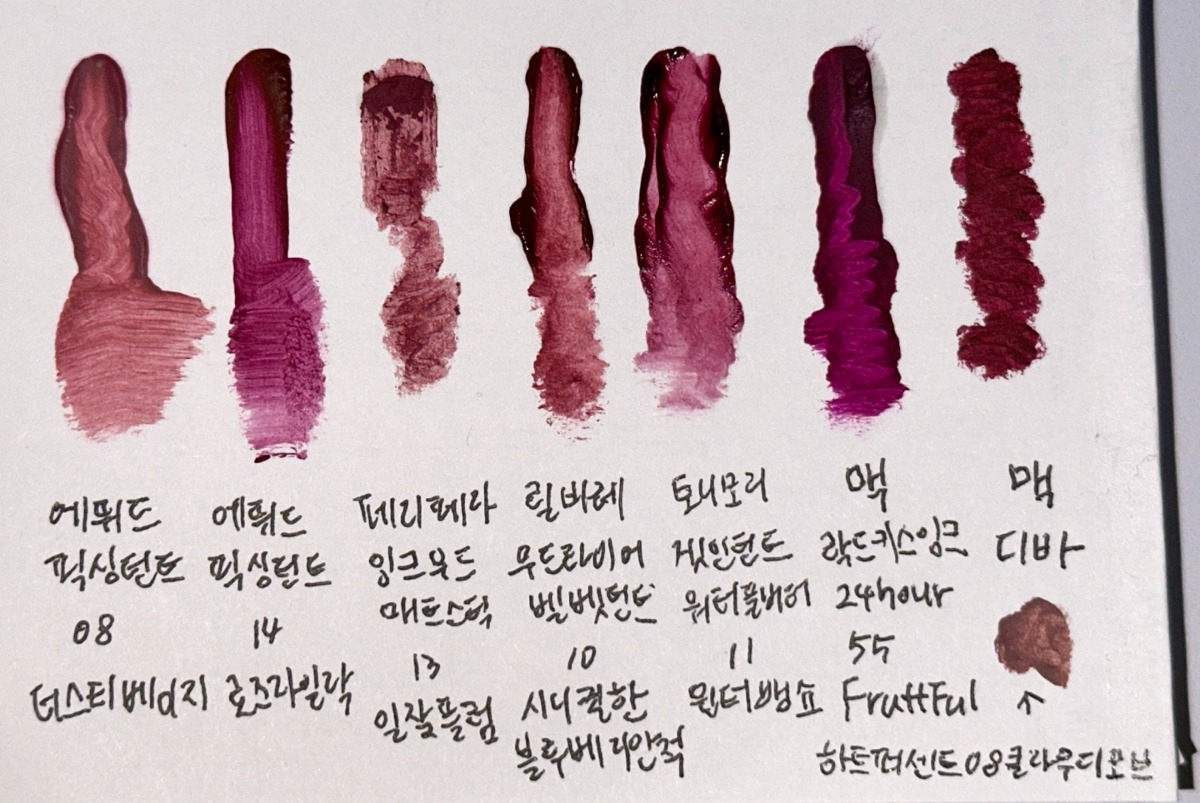 에뛰드
픽싱틴트
08
더스티베이지
에뛰드
픽싱틴트
14
로즈라일락
페리페라
잉크무드
매트스틱
13
일잘플럼
릴바레
무드라이어
벨벳틴트
10
시니컬한
블루베리안척
토니모리
겟잇틴트
워터풀버터
11
윈터뱅쇼
맥
락드키스잉크
24hour
55
FruitFul
맥
디바
↑
하트퍼센트08클라우디모브